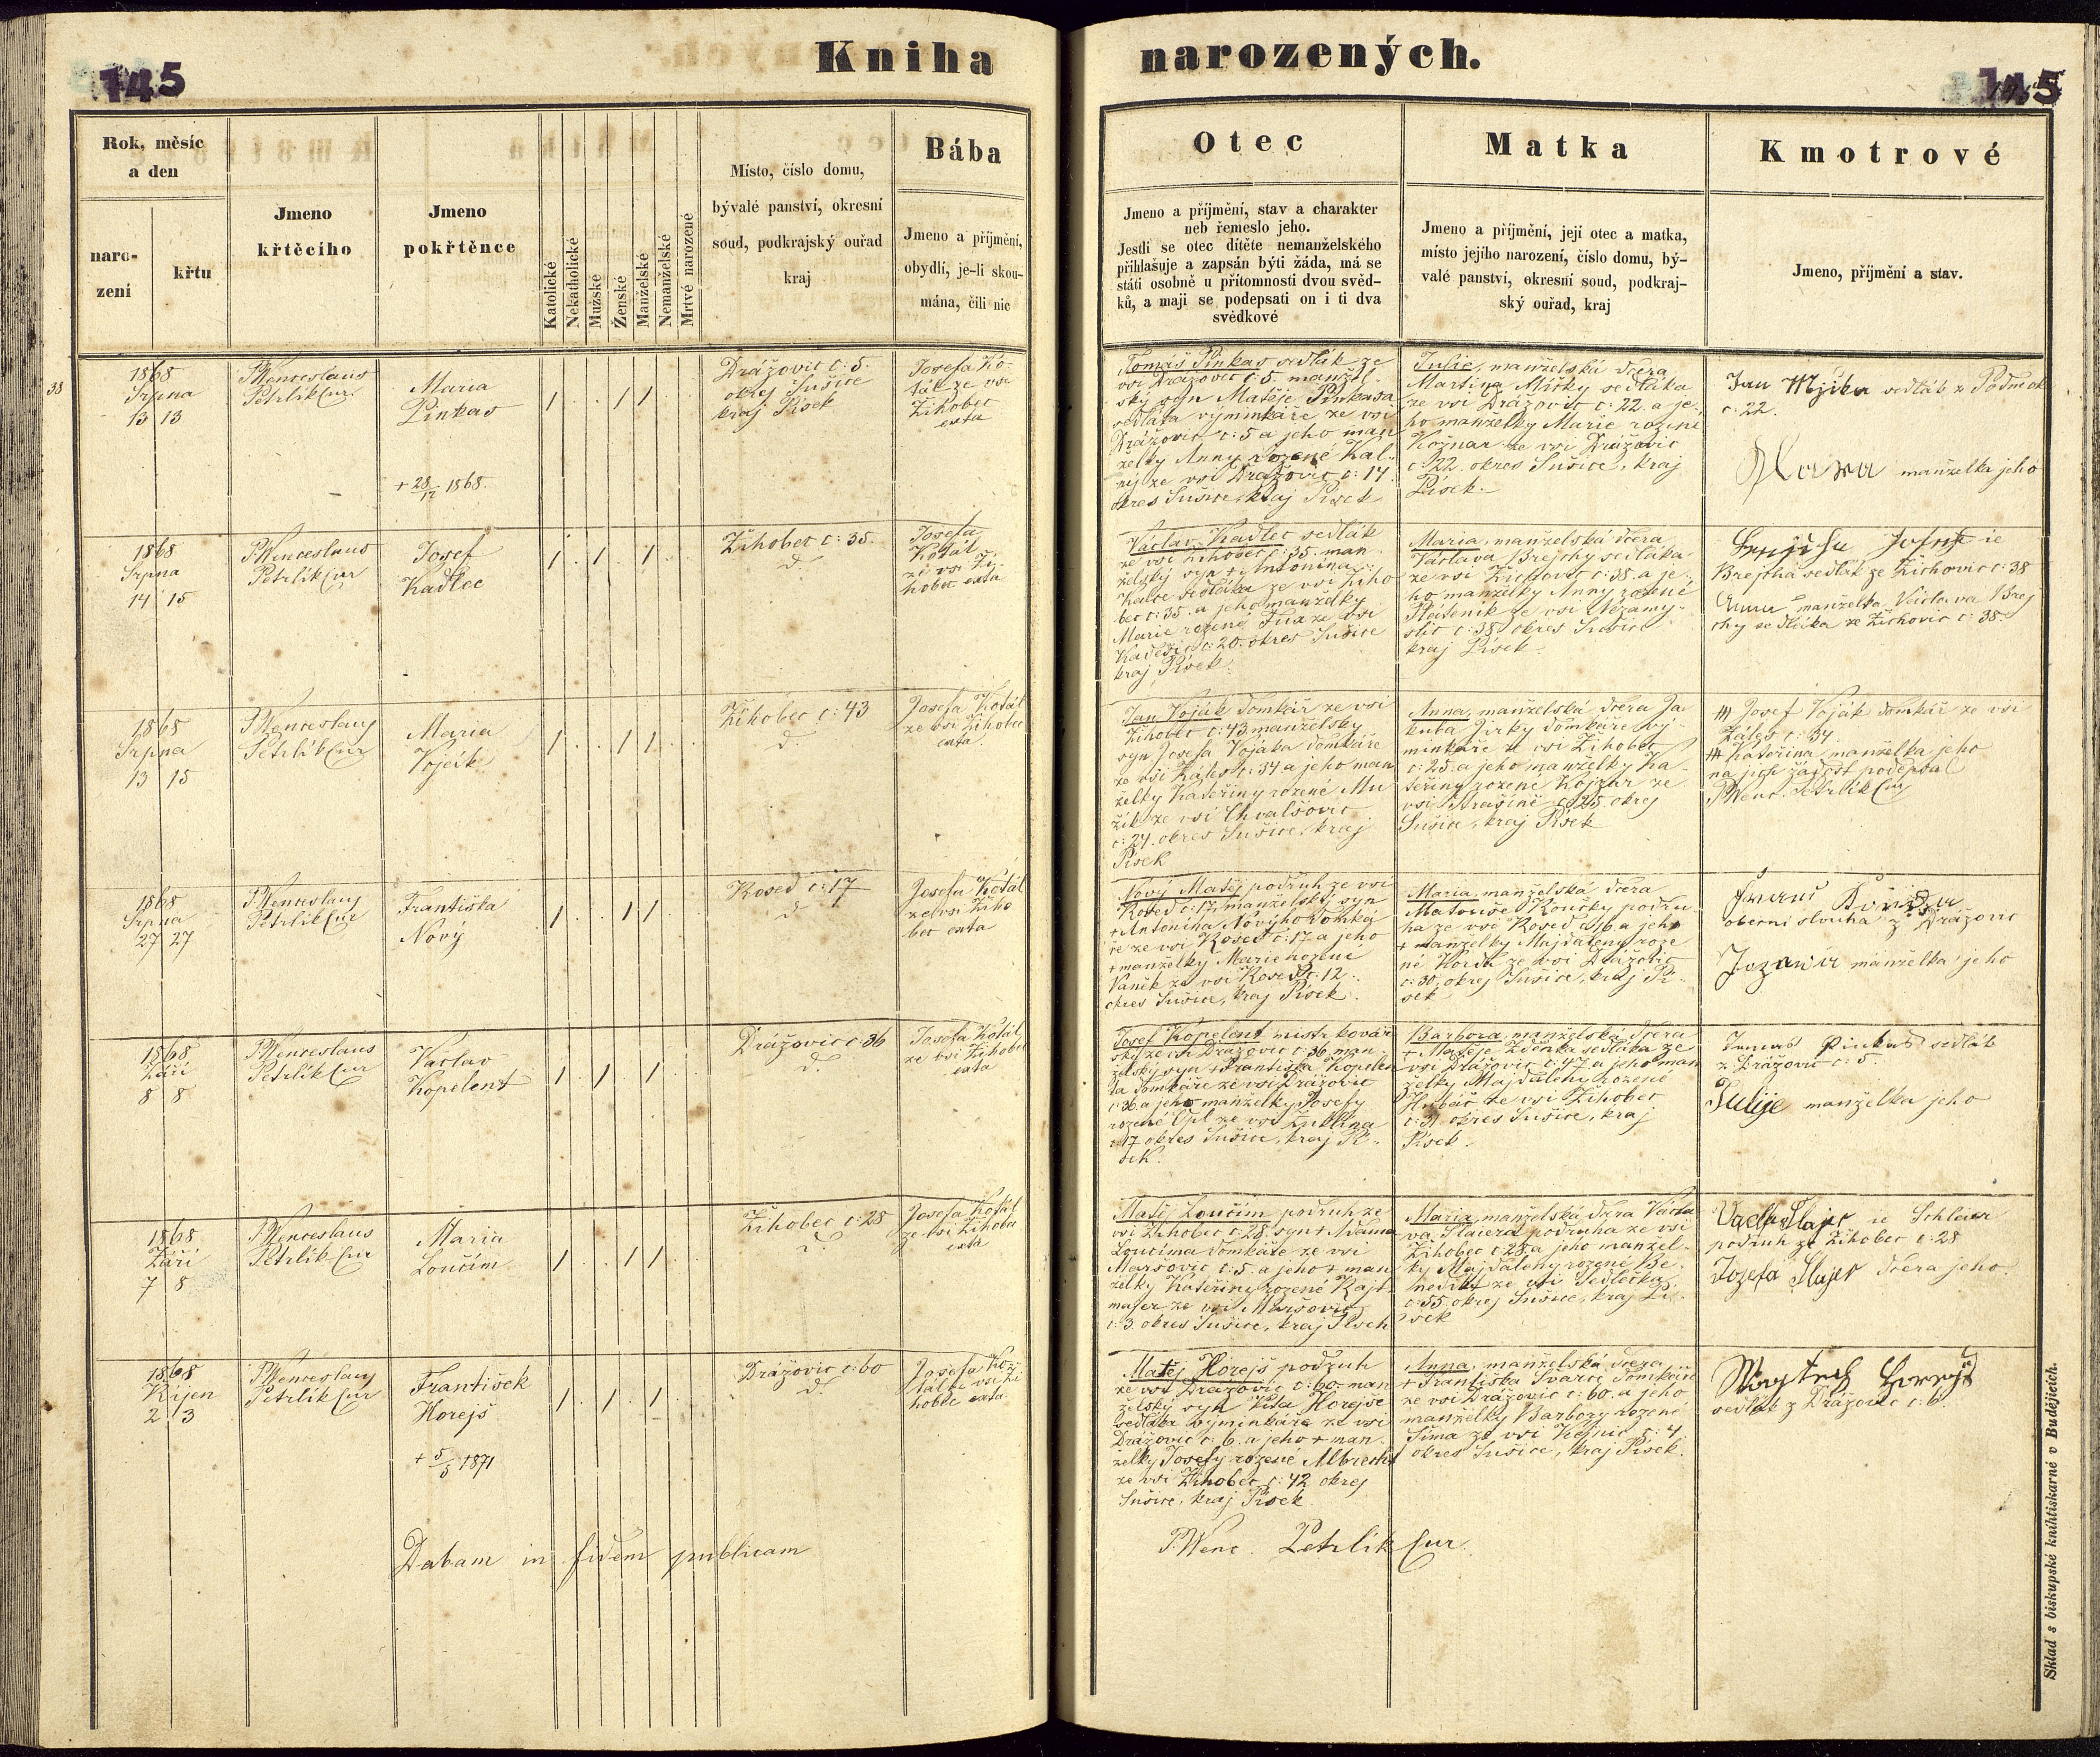 Kniha narozených.
145
145
Rok, měsíc
a den
naro-
zení
křtu
Jmeno
křtěcího
Jmeno
pokřtěnce
Katolické
Nekatholické
Mužské
Ženské
Manželské
Nemanželské
Mrtvé narozené
Místo, číslo domu,
bývalé panství, okresní
soud, podkrajský ouřad
kraj
Bába
Jmeno a příjmění,
obydlí, je-li skou-
mána, čili nic
Otec
Jmeno a příjmění, stav a charakter
neb řemeslo jeho.
Jestli se otec dítěte nemanželského
přihlašuje a zapsán býti žádá, má se
státi osobně u přítomnosti dvou svěd-
ků, a mají se podepsati on i ti dva
svědkové
Matka
Jmeno a příjmění, její otec a matka,
místo jejího narození, číslo domu, bý-
valé panství, okresní soud, podkraj-
ský ouřad, kraj
Kmotrové
Jmeno, příjmění a stav.
38
1868
Srpna
13 13
P. Wenceslaus
Petrlík Cur.
Maria
Pinkas
+ 28/12 1868.
Dražovic č: 5.
okrej Sušice
kraj Písek
Josefa Ko-
tál ze vsi
Žihobec
exta
Tomáš Pinkas sedlák ze
vsi Dražovic č: 5. manžel-
ský syn Matěje Pinkasa
sedláka výminkáře ze vsi
Dražovic č: 5 a jeho man
želky Anny rozené Kal-
ný ze vsi Dražovic č: 14.
okres Sušice, kraj Písek
Julie, manželská dcera
Martina Míčky sedláka
ze vsi Dražovic č: 22. a je-
ho manželky Marie rozené
Kožnar ze vsi Dražovic
č: 22. okres Sušice, kraj
Písek.
Jan sedlák z
č: 22.
manželka jeho
1868
Srpna
14 15
P. Wenceslaus
Petrlík Cur
Josef
Kadlec
Žihobec č: 35.
d.
Josefa
Kotál
ze vsi Ži-
hobec exta
Václav Kadlec sedlák
ze vsi Žihobec č: 35. man
želský syn + Antonína
sedláka ze vsi Žiho
bec č: 35. a jeho manželky
Marie rozené ze vsi
č: 20. okres Sušice
kraj Písek.
Maria, manželská dcera
Václava Brejchy sedláka
ze vsi Žichovic č: 38. a je-
ho manželky Anny rozené
ze vsi Nezamy-
slic č: 38. okres Sušice
kraj Písek.
ie
Brejcha sedlák ze Žichovic č: 38
Anna manželka Václava Brej
chy sedláka ze Žichovic č: 38.
1868
Srpna
13 15
P. Wenceslaus
Petrlík Cur
Maria
Voják
Žihobec č: 43
d.
Josefa Kotál
ze vsi Žihobec
exta.
Jan Voják domkář ze vsi
Žihobec č: 43. manželský
syn Josefa Vojáka domkáře
ze vsi Kales č: 34 a jeho man
želky Kateřiny rozené Mu
žík ze vsi Chvalšovic
č: 24. okres Sušice, kraj
Písek
Anna, manželská dcera Ja-
kuba Jirky domkáře vý-
minkáře ze vsi Žihobec
č: 25. a jeho manželky Ka-
teřiny rozené ze
vsi č: 25 okrej
Sušice, kraj Písek
+++ Josef Voják domkář ze vsi
Kales č: 34.
+++ Kateřina manželka jeho
na jich žádost podepsal
P. Wenc. Petrlík Cur
1868
Srpna
27 27
P. Wenceslaus
Petrlík Cur
Františka
Nový
Kosed č: 17
d.
Josefa Kotál
ze vsi Žiho
bec exta
Nový Matěj podruh ze vsi
Kosed č: 17. manželský syn
+ Antonína Nového domká
ře ze vsi Kosed č: 17 a jeho
+ manželky Marie rozené
Vaněk ze vsi Kosed č: 12.
okres Sušice, kraj Písek.
Maria, manželská dcera
Matouše Koučky podru-
ha ze vsi Kosed č: 16 a jeho
+ manželky Majdaleny roze
né ze vsi Dražovic
č: 30. okrej Sušice, kraj Pí-
sek
oberní sluha z Dražovic
manželka jeho
1868
Září
8 8
P. Wenceslaus
Petrlík Cur
Vaclav
Kopelent
Dražovic č: 36
d.
Josefa Kotál
ze vsi Žihobec
exta
Josef Kopelent mistr kovář
ský ze vsi Dražovic č: 36. man-
želský syn + Františka Kopelen
ta domkáře ze vsi Dražovic
č: 36 a jeho manželky Josefy
rozené ze vsi
č: 17 okres Sušice, kraj Pí-
sek.
Barbora, manželská dcera
+ Matěje sedláka ze
vsi Dražovic č: 47. a jeho man
želky Majdaleny rozené
ze vsi Žihobec
č: 31. okres Sušice, kraj
Písek.
Pinkas sedlák
z Dražovic č: 5.
Julije manželka jeho
1868
Září
7 8
P. Wenceslaus
Petrlík Cur
Maria
Loučim
Žihobec č: 28
d.
Josefa Kotál
ze vsi Žihobec
exta
Matěj Loučim podruh ze
vsi Žihobec č: 28. syn + Adama
Loučima domkáře ze vsi
Maršovic č: 5. a jeho + man-
želky Kateřiny rozené Rajt-
majer ze vsi Maršovic
č: 3. okres Sušice, kraj Písek
Maria, manželská dcera Václa
va Šlaiera podruha ze vsi
Žihobec č: 28. a jeho manžel-
ky Majdaleny rozené Be-
nedikt ze vsi Sedlečka
č: 55. okrej Sušice, kraj Pí-
sek
Šlajer ie Schleier
podruh ze Žihobec č: 28
Jozefa Šlajer dcera jeho.
1868
Říjen
2 3
P. Wenceslaus
Petrlík Cur
František
Horejš
+ 5/5 1871
Dražovic č: 60
d.
Josefa Ko-
tál ze vsi Ži
hobec exta
Matěj Horejš podruh
ze vsi Dražovic č: 60. man-
želský syn Víta Horejše
sedláka výminkáře ze vsi
Dražovic č: 6. a jeho + man-
želky Josefy rozené Albrecht
ze vsi Žihobec č: 42 okrej
Sušice, kraj Písek
Anna, manželská dcera
+ Františka Švarce domkáře
ze vsi Dražovic č: 60. a jeho
manželky Barbory rozené
Šíma ze vsi Kejnic č: 4.
okres Sušice, kraj Písek.
Wojtech Horejš
sedlák z Dražovic č: 6.
Dabam in fidem publicam
P. Wenc. Petrlík Cur.
Sklad s biskupské knihtiskarně v Budějicích.